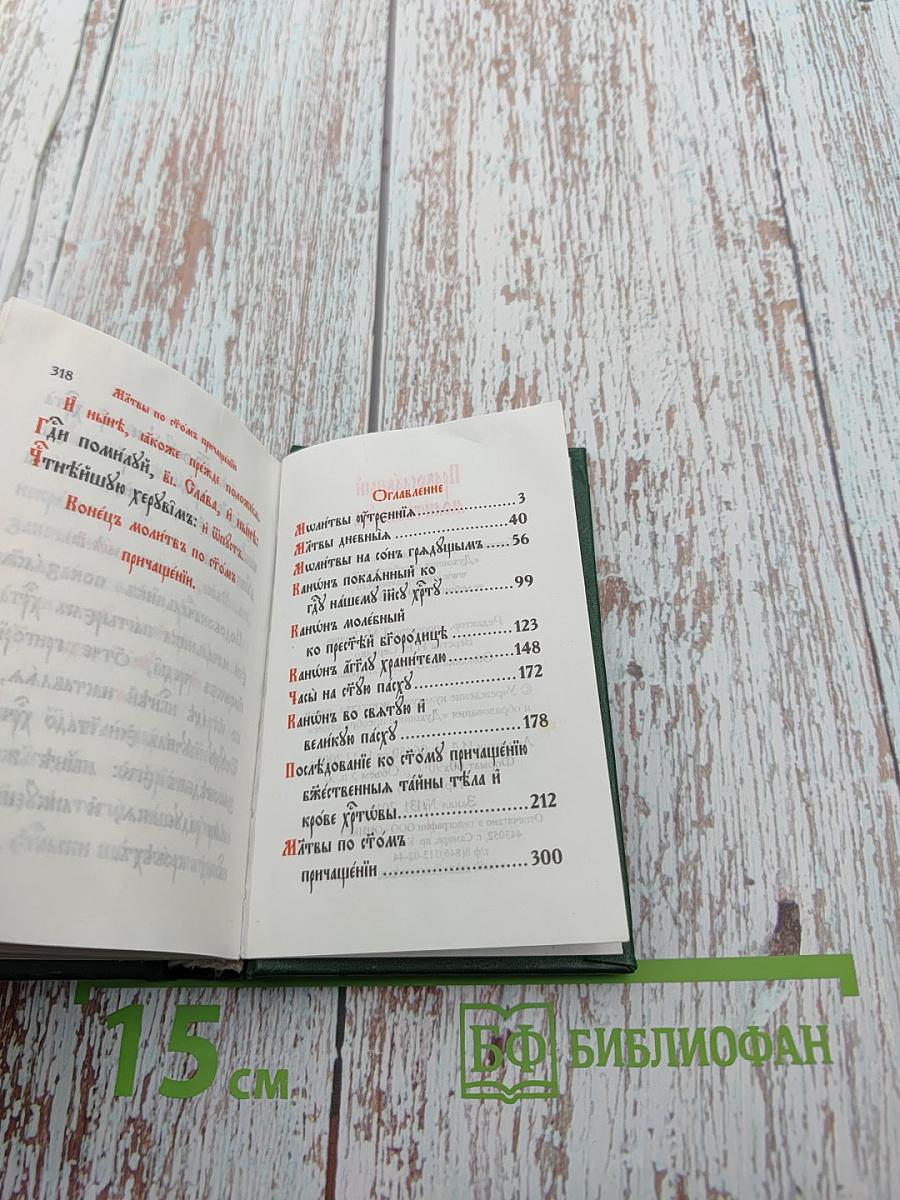 318
Мл҃твы по ст҃о́мъ причаще́нїи
И҆ ны́нѣ, ꙗ҆́коже пре́жде положи́сѧ.
Гдⷭ҇и поми́лꙋй, в҃і. Сла́ва, и҆ ны́нѣ:
Чⷭ҇тнѣ́йшꙋю херꙋві̑мъ: и҆ ѿпꙋ́стъ.
Коне́цъ моли́твъ по ст҃о́мъ
причаще́нїи.
Оглавле́ние
Мѡли́твы ᲂу҆́трєннїѧ 3
Мл҃твы дневны́ѧ 40
Мѡли́твы на со́нъ грѧдꙋ́щымъ 56
Канѡ́нъ покаѧ́нный ко
гдⷭ҇ꙋ на́шемꙋ і҆и҃сꙋ хрⷭ҇тꙋ̀ 99
Канѡ́нъ моле́бный
ко прест҃ѣ́й бг҃оро́дицѣ 123
Канѡ́нъ а҆́гг҃лꙋ храни́телю 148
Часы̀ на ст҃ꙋ́ю па́схꙋ 172
Канѡ́нъ во свѧтꙋ́ю и҆
вели́кꙋю па́схꙋ 178
Послѣ́дованїе ко ст҃о́мꙋ причаще́нїю
бж҃е́ственныѧ та́йны тѣ́ла и҆
кро́ве хрⷭ҇то́вы 212
Мл҃твы по ст҃о́мъ
причаще́нїи 300
15 см
БФ БИБЛИОФАН